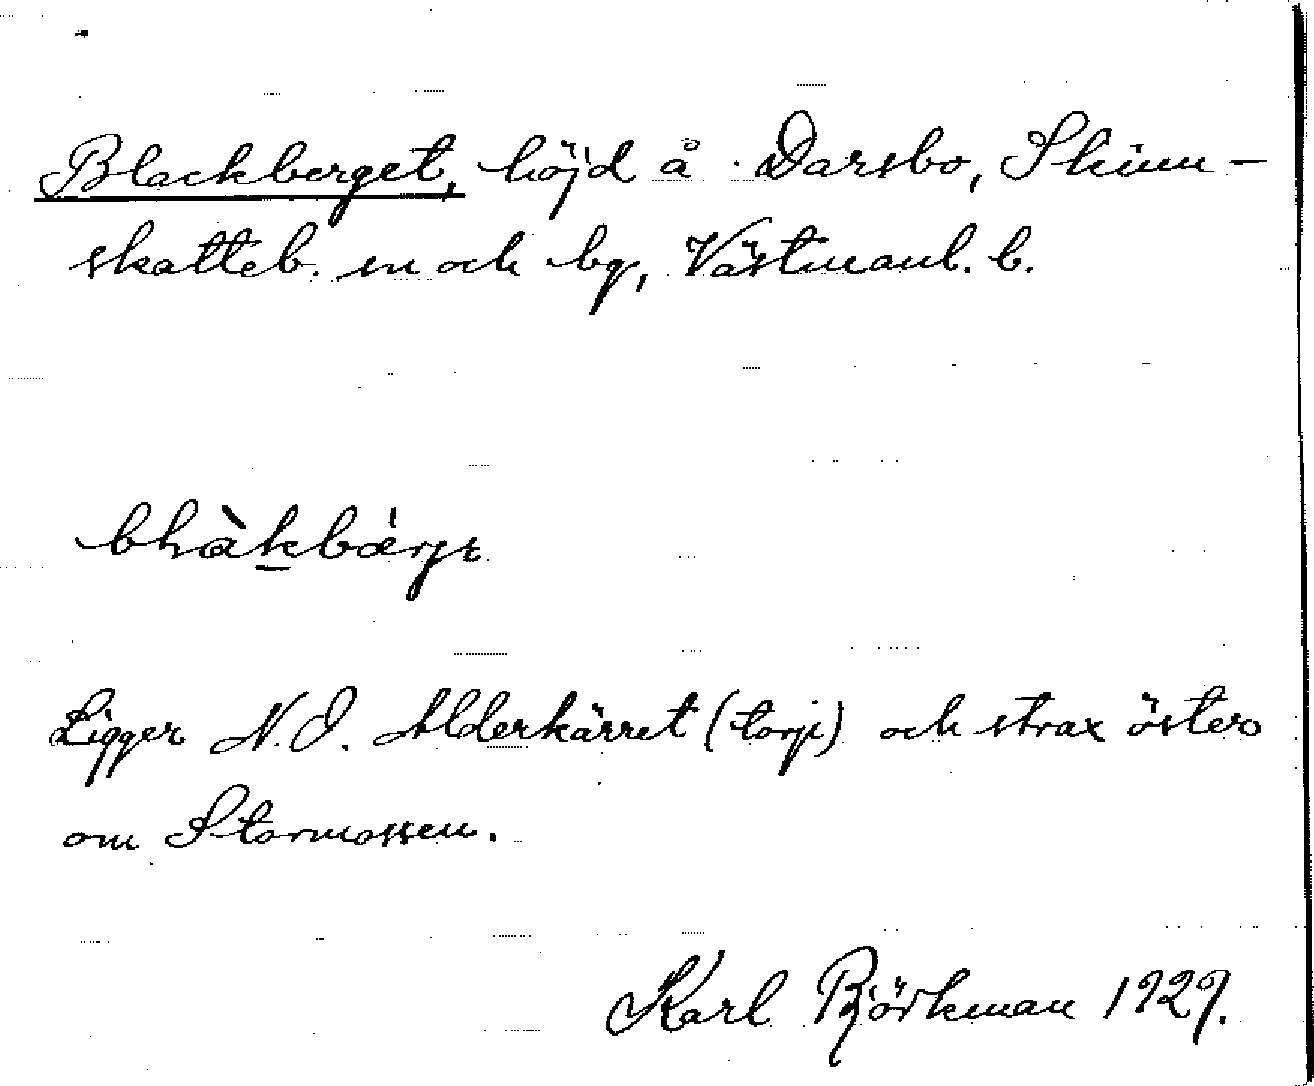 Blackberget, höjd å Darsbo, Skinn-
skatteb. sn och bg, Västmanl. l.
blàkbǽrjɛ
Ligger N.O. Alderkärret (torp) och strax öster
om Stormossen.
Karl Björkman 1929.